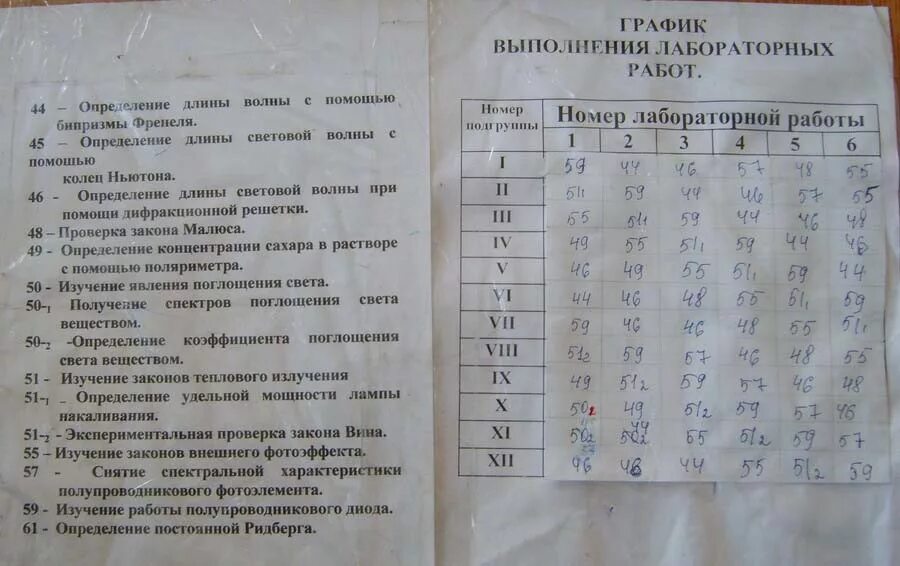 44 – Определение длины волны с помощью
бипризмы Френеля.
45 – Определение длины световой волны с
помощью
колец Ньютона.
46 - Определение длины световой волны при
помощи дифракционной решетки.
48 – Проверка закона Малюса.
49 - Определение концентрации сахара в растворе
с помощью поляриметра.
50 - Изучение явления поглощения света.
50-1 Получение спектров поглощения света
веществом.
50-2 -Определение коэффициента поглощения
света веществом.
51 - Изучение законов теплового излучения
51-1 _ Определение удельной мощности лампы
накаливания.
51-2 - Экспериментальная проверка закона Вина.
55 – Изучение законов внешнего фотоэффекта.
57 - Снятие спектральной характеристики
полупроводникового фотоэлемента.
59 - Изучение работы полупроводникового диода.
61 - Определение постоянной Ридберга.
ГРАФИК
ВЫПОЛНЕНИЯ ЛАБОРАТОРНЫХ
РАБОТ.
Номер
подгруппы
Номер лабораторной работы
1 2 3 4 5 6
I 59 44 46 57 48 55
II 51 59 44 46 57 55
III 55 51 59 44 46 48
IV 49 55 51 59 44 46
V 46 49 55 51 59 44
VI 44 46 48 55 51 59
VII 59 46 46 48 55 51
VIII 512 59 57 46 48 55
IX 49 512 59 57 46 48
X 502 49 512 59 57 46
XI 502 502 44 55 512 59 57
XII 46 44 55 512 59